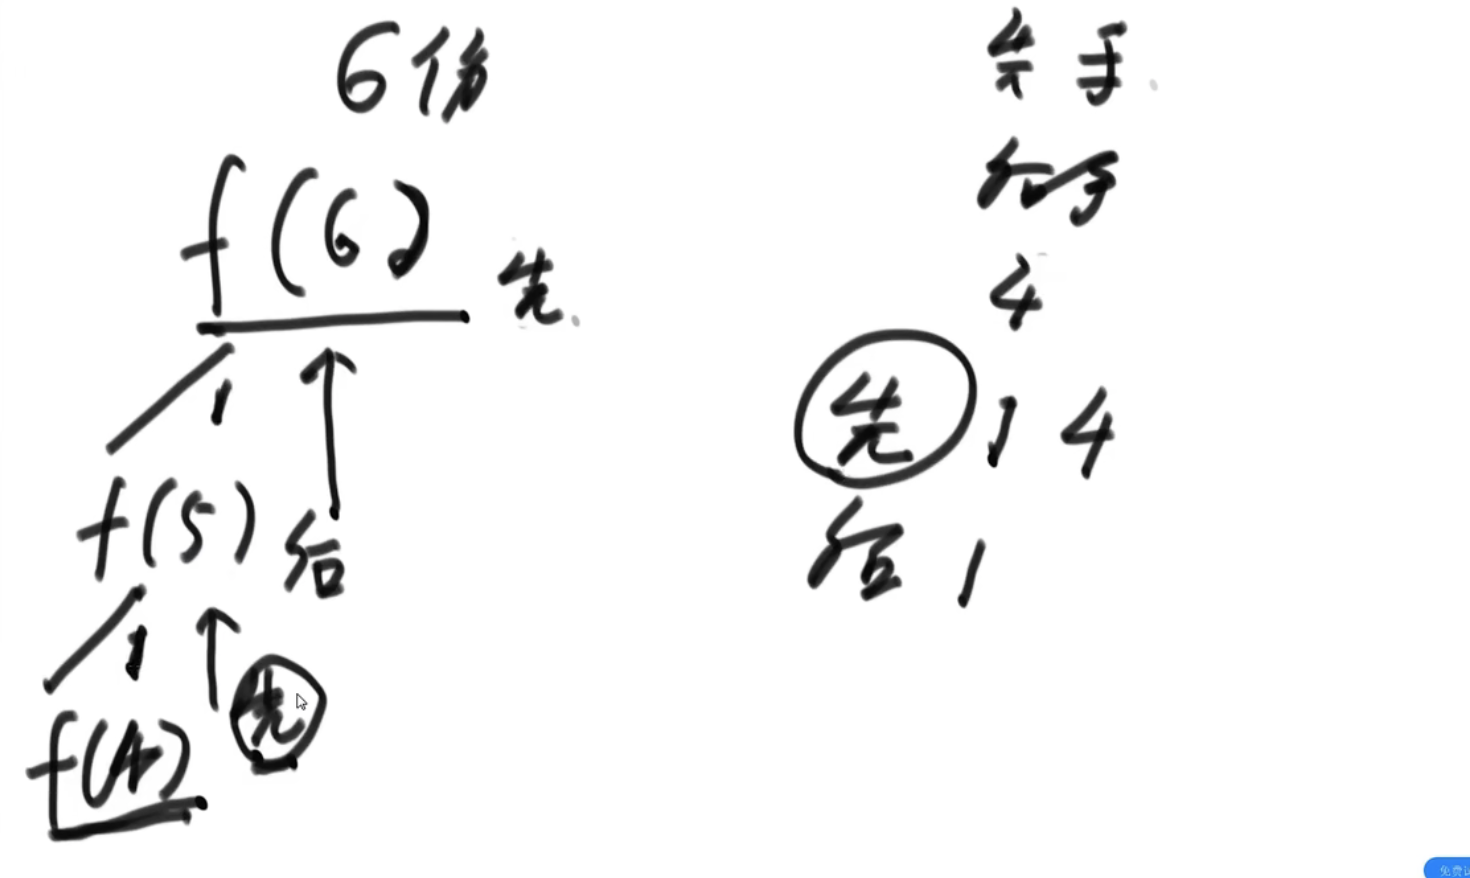 6份
先手
后手
f(6) 先
4
1
先 1 4
f(5) 后
后 1
1
先
f(4)
免费